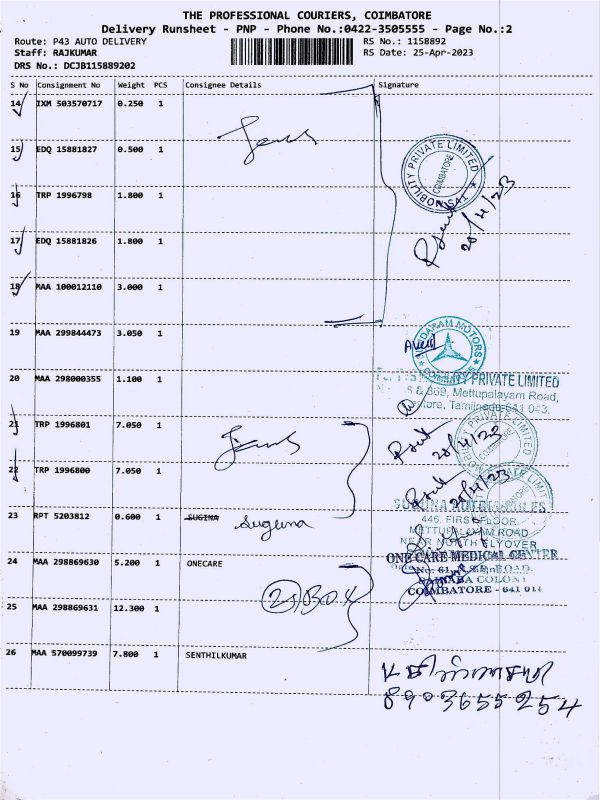 THE PROFESSIONAL COURIERS, COIMBATORE
Delivery Runsheet - PNP - Phone No.:0422-3505555 - Page No.:2
Route: P43 AUTO DELIVERY
RS No.: 1158892
Staff: RAJKUMAR
RS Date: 25-Apr-2023
DRS No.: DCJB115889202
S No Consignment No Weight PCS Consignee Details Signature
14 IXM 503570717 0.250 1
15 EDQ 15881827 0.500 1
MOBILITY PRIVATE LIMITED
COIMBATORE
16 TRP 1996798 1.800 1
17 EDQ 15881826 1.800 1
18 MAA 100012110 3.000 1
19 MAA 299844473 3.050 1
MOTORS
20 MAA 298000355 1.100 1
PRIVATE LIMITED
& 869, Mettupalayam Road,
Tamilnadu-641 043.
21 TRP 1996801 7.050 1
22 TRP 1996800 7.050 1
23 RPT 5203812 0.600 1 SUGINA suguna
446, FIRST FLOOR
METTUPALAYAM ROAD
NEAR NORTH FLYOVER
24 MAA 298869630 5.200 1 ONECARE
ONE CARE MEDICAL CENTER
COLONY
COIMBATORE - 641 011
25 MAA 298869631 12.300 1
26 MAA 570099739 7.800 1 SENTHILKUMAR
8903655254